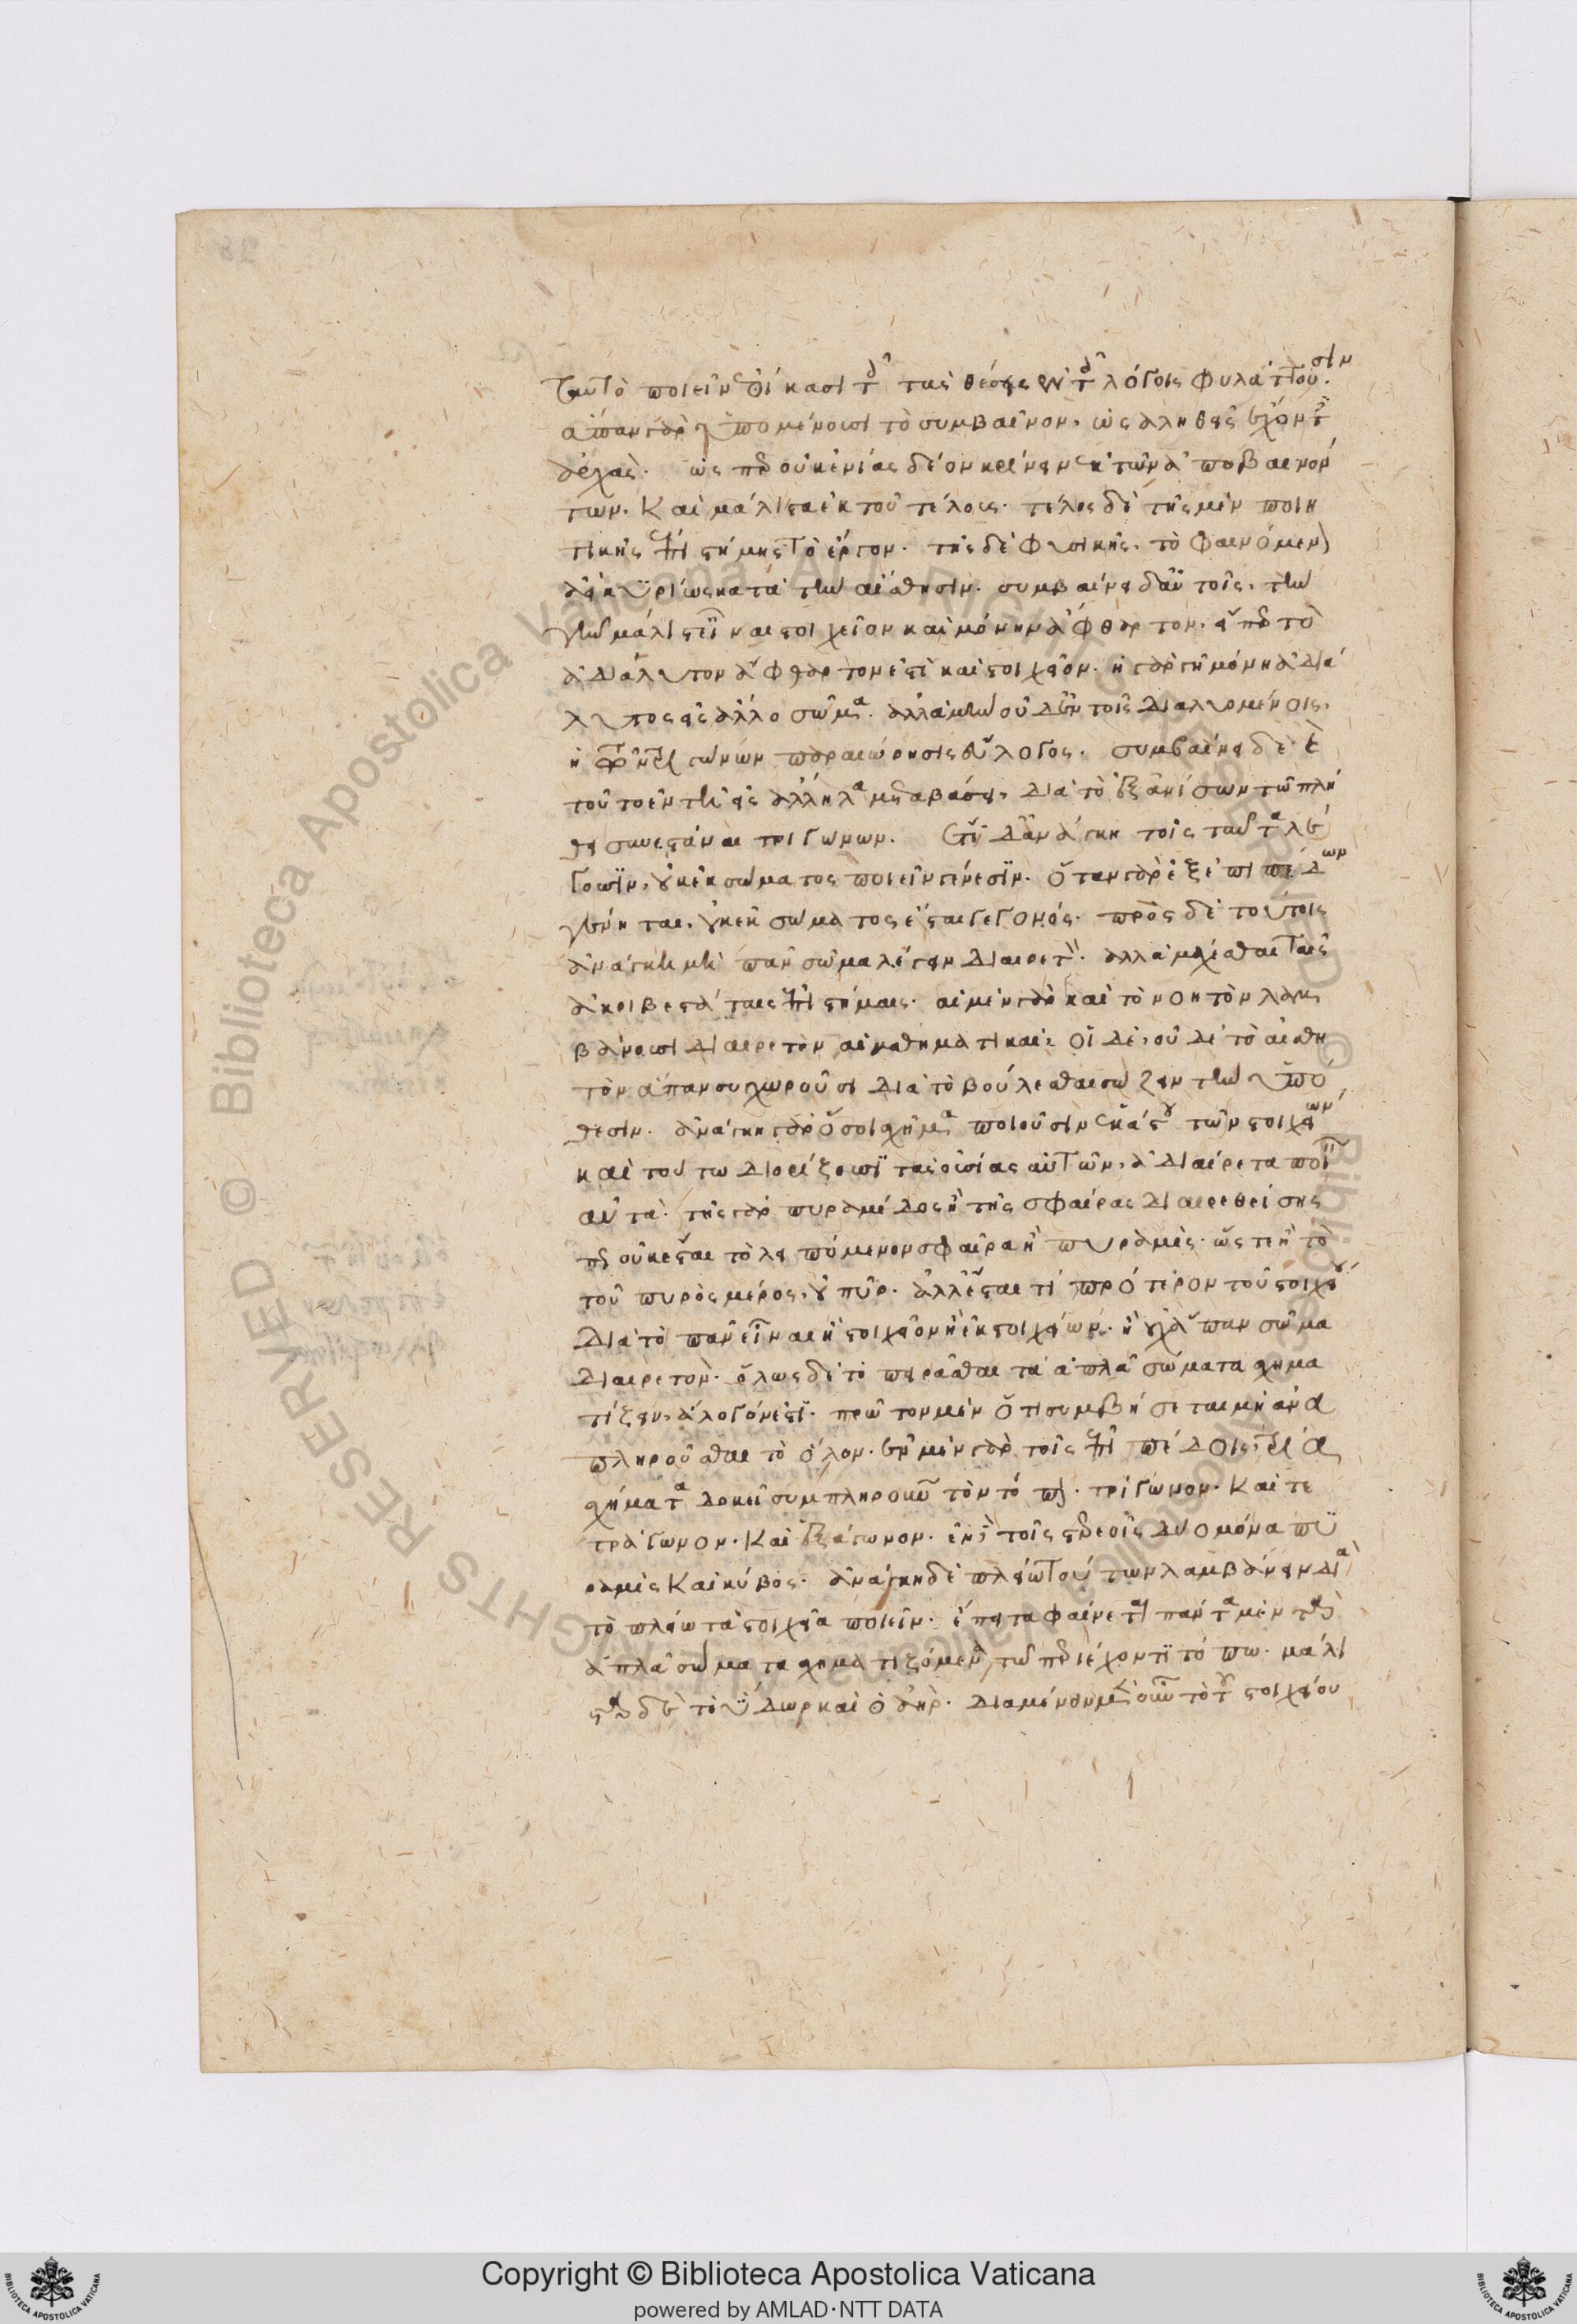 ταυτὸ ποιεῖν ἐοίκασι τοῖς τὰς θέσεις ἐν τοῖς λόγοις φυλάττουσιν.
ἅπαν γὰρ ὑπομένουσι τὸ συμβαῖνον. ὡς ἀληθεῖς ἔχοντες
ἀρχάς. ὥσπερ οὐκ ἐνίας δέον κρίνειν ἐκ τῶν ἀποβαινόν
των. Καὶ μάλιστα ἐκ τοῦ τέλους. τέλος δὲ τῆς μὲν ποιη
τικῆς ἐπιστήμης τὸ ἔργον. τῆς δὲ φυσικῆς. τὸ φαινόμενον
ἀεὶ κυρίως κατὰ τὴν αἴσθησιν. συμβαίνει δ' αὐτοῖς. τὴν
γῆν μάλιστα εἶναι στοιχεῖον καὶ μόνην ἄφθαρτον. εἴπερ τὸ
ἀδιάλυτον ἄφθαρτον ἐστὶ καὶ στοιχεῖον. ἡ γὰρ γῆ μόνη ἀδιά
λυτος εἰς ἄλλο σῶμα. ἀλλὰ μὴν οὐδ' ἐν τοῖς διαλυομένοις.
ἡ τῶν τριγώνων παραιώρησις εὔλογος. συμβαίνει δὲ καὶ
τοῦτο ἐν τῇ εἰς ἄλληλα μεταβάσει. διὰ τὸ ἐξ ἀνίσων τῷ πλή
θει συνεστάναι τριγώνων. ἔτι δ' ἀνάγκη τοῖς ταῦτα λέ
γουσιν. οὐκ ἐκ σώματος ποιεῖν γένεσιν. ὅταν γὰρ ἐξ ἐπιπέδων
γένηται. οὐκ ἐκ σώματος ἔσται γεγονός. πρὸς δὲ τούτοις
ἀνάγκη μὴ πᾶν σῶμα λέγειν διαιρετόν. ἀλλὰ μάχεσθαι ταῖς
ἀκριβεστάταις ἐπιστήμαις. αἱ μὲν γὰρ καὶ τὸ νοητὸν λαμ
βάνουσι διαιρετὸν αἱ μαθηματικαί. οἱ δὲ, οὐδὲ τὸ αἰσθη
τὸν ἅπαν συγχωροῦσι διὰ τὸ βούλεσθαι σώζειν τὴν ὑπό
θεσιν. ἀνάγκη γὰρ ὅσοι σχῆμα ποιοῦσιν ἑκάστου τῶν στοιχείων
καὶ τούτω διορίζουσι τὰς οὐσίας αὐτῶν. ἀδιαίρετα ποιεῖν
αὐτά. τῆς γὰρ πυραμίδος ἢ τῆς σφαίρας διαιρεθείσης
πως οὐκ ἔσται τὸ λειπόμενον σφαῖρα ἢ πυραμίς. ὥστε ἢ τὸ
τοῦ πυρὸς μέρος, οὐ πῦρ. ἀλλ' ἔσται τί πρότερον τοῦ στοιχείου
διὰ τὸ πᾶν εἶναι ἢ στοιχεῖον ἢ ἐκ στοιχείων. ἢ οὐχ ἅπαν σῶμα
διαιρετόν. ὅλως δὲ τὸ πειρᾶσθαι τὰ ἁπλᾶ σώματα σχημα
τίζειν, ἄλογόν ἐστι. πρῶτον μὲν ὅτι συμβήσεται μὴ ἀνα
πληροῦσθαι τὸ ὅλον. ἐν μὲν γὰρ τοῖς ἐπιπέδοις, τρία
σχήματα δοκεῖ συμπληροῦν τὸν τόπον. τρίγωνον. Καὶ τε
τράγωνον. Καὶ ἑξάγωνον. ἐν δὲ τοῖς στερεοῖς δύο μόνα πυ
ραμὶς Καὶ κύβος. ἀνάγκη δὲ πλείω τούτων λαμβάνειν διὰ
τὸ πλείω τὰ στοιχεῖα ποιεῖν. ἔπειτα φαίνεται πάντα μὲν τὰ
ἁπλᾶ σώματα σχηματιζόμενα τῷ περιέχοντι τόπω. μάλι
στα δὲ τὸ ὕδωρ καὶ ὁ ἀήρ. διαμένειν μὲν οὖν τὸ τοῦ στοιχείου